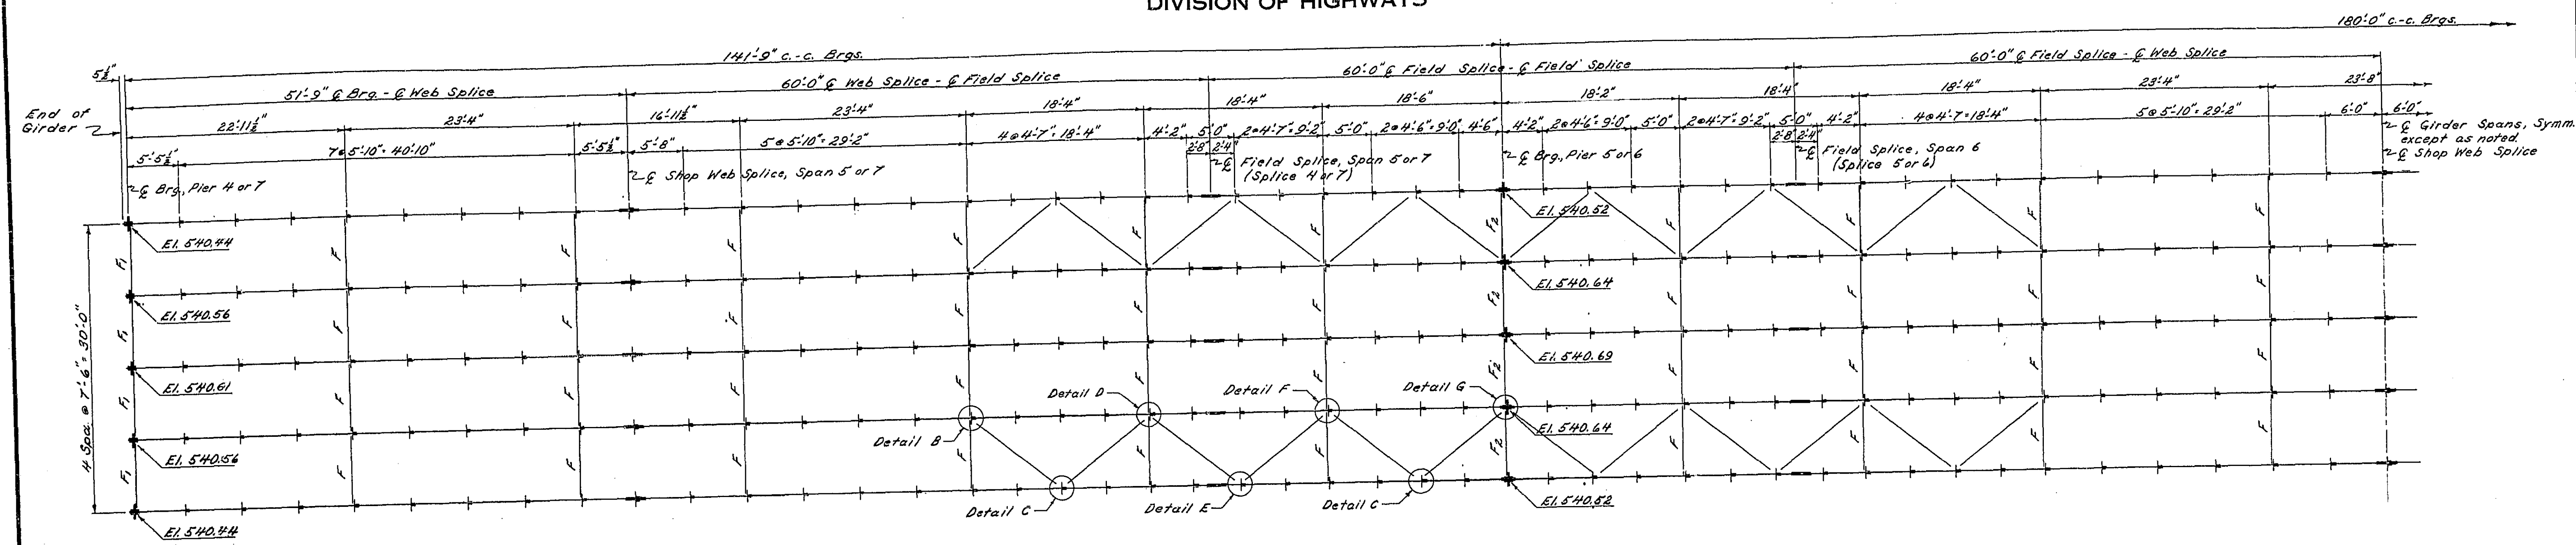 DIVISION OF HIGHWAYS
180'-0" c.-c. Brgs.
141'-9" c.-c. Brgs.
5½"
51'-9" ℄ Brg. - ℄ Web Splice
60'-0" ℄ Web Splice - ℄ Field Splice
60'-0" ℄ Field Splice - ℄ Field Splice
60'-0" ℄ Field Splice - ℄ Web Splice
End of
Girder
22'-11½"
23'-4"
16'-11½"
23'-4"
18'-4"
18'-4"
18'-6"
18'-2"
18'-4"
18'-4"
23'-4"
23'-8"
5'-5½"
7@5'-10"=40'-10"
5'-5½"
5'-8"
5@5'-10"=29'-2"
4@4'-7"=18'-4"
4'-2"
5'-0"
2@4'-7"=9'-2"
5'-0"
2@4'-6"=9'-0"
4'-6"
4'-2"
2@4'-6"=9'-0"
5'-0"
2@4'-7"=9'-2"
5'-0"
4'-2"
4@4'-7"=18'-4"
5@5'-10"=29'-2"
6'-0"
6'-0"
2'-8"
2'-4"
2'-8"
2'-4"
℄ Brg., Pier 4 or 7
℄ Shop Web Splice, Span 5 or 7
℄ Field Splice, Span 5 or 7
(Splice 4 or 7)
℄ Brg., Pier 5 or 6
℄ Field Splice, Span 6
(Splice 5 or 6)
℄ Girder Spans, Symm.
except as noted.
℄ Shop Web Splice
4 Spa. @ 7'-6" = 30'-0"
El. 540.44
El. 540.56
El. 540.61
El. 540.56
El. 540.44
El. 540.52
El. 540.64
El. 540.69
El. 540.64
El. 540.52
F1
F1
F1
F1
F F F F F F
F F F F F F
F F F F F F
F F F F F F
F2
F2
F2
F2
F F F F
F F F F
F F F F
F F F F
Detail B
Detail D
Detail F
Detail G
Detail C
Detail E
Detail C